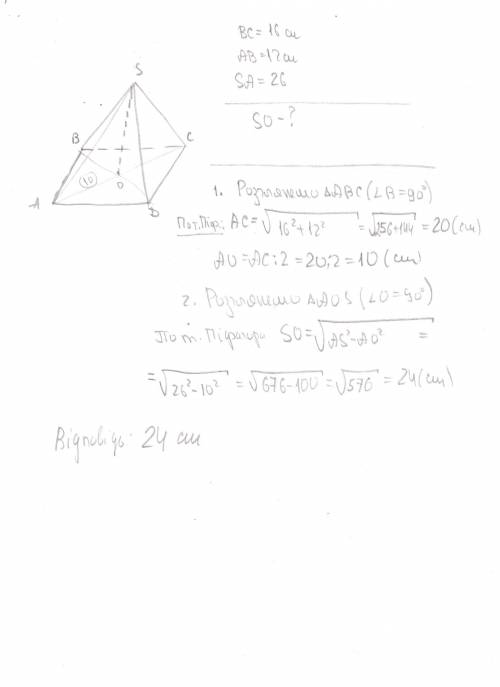 BC = 16 см
AB = 12 см
SA = 26
SO - ?
S
B
C
10
O
A
D
1. Розглянемо ΔABC (∠B = 90°)
По т. Піф.: AC = √16² + 12² = √256 + 144 = 20 (см)
AO = AC : 2 = 20 : 2 = 10 (см)
2. Розглянемо ΔAOS (∠O = 90°)
По т. Піфагора SO = √AS² - AO² =
= √26² - 10² = √676 - 100 = √576 = 24 (см)
Відповідь: 24 см